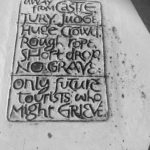 away
from CASTLE
JURY. JUDGE.
HUGE CROWD
ROUGH ROPE.
SHORT DROP.
NO GRAVE
only future
tourists who
might GRIEVE.